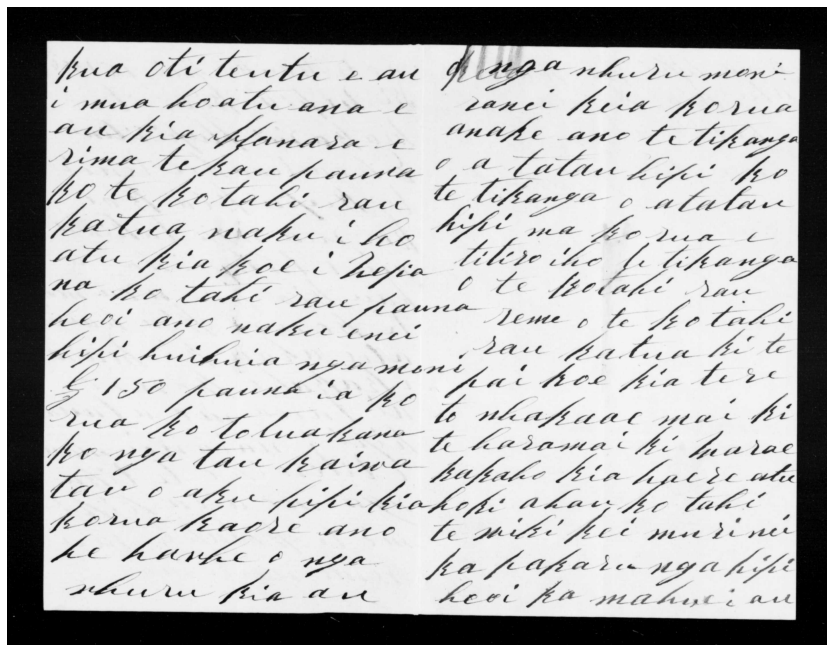 kua oti te utu e au
i mua hoatu ana e
au kia Manara e
rima tekau pauna
ko te kotahi rau
katua naku i ho
atu kia koe i
na ko tahi rau pauna
heoi ano naku enei
hipi huihuia nga moni
£150 pauna ia ko
rua ko to tuakana
ko nga tau kaiwa
tau o aku hipi kia
korua kaore ano
he hawhe o nga
whuru kia au
nga whuru moni
ranei keia korua
anake ano te tikanga
o a tatau hipi ko
te tikanga o atatau
hipi ma korua e
titiro iho te tikanga
o te kotahi rau
reme o te kotahi
rau katua ki te
pai koe kia tere
to whakaae mai ki
te haramai ki
kakaho kia haere atu
hoki ahau ko tahi
te wiki kei muri nei
ka pakaru nga hipi
heoi ka mahue i au